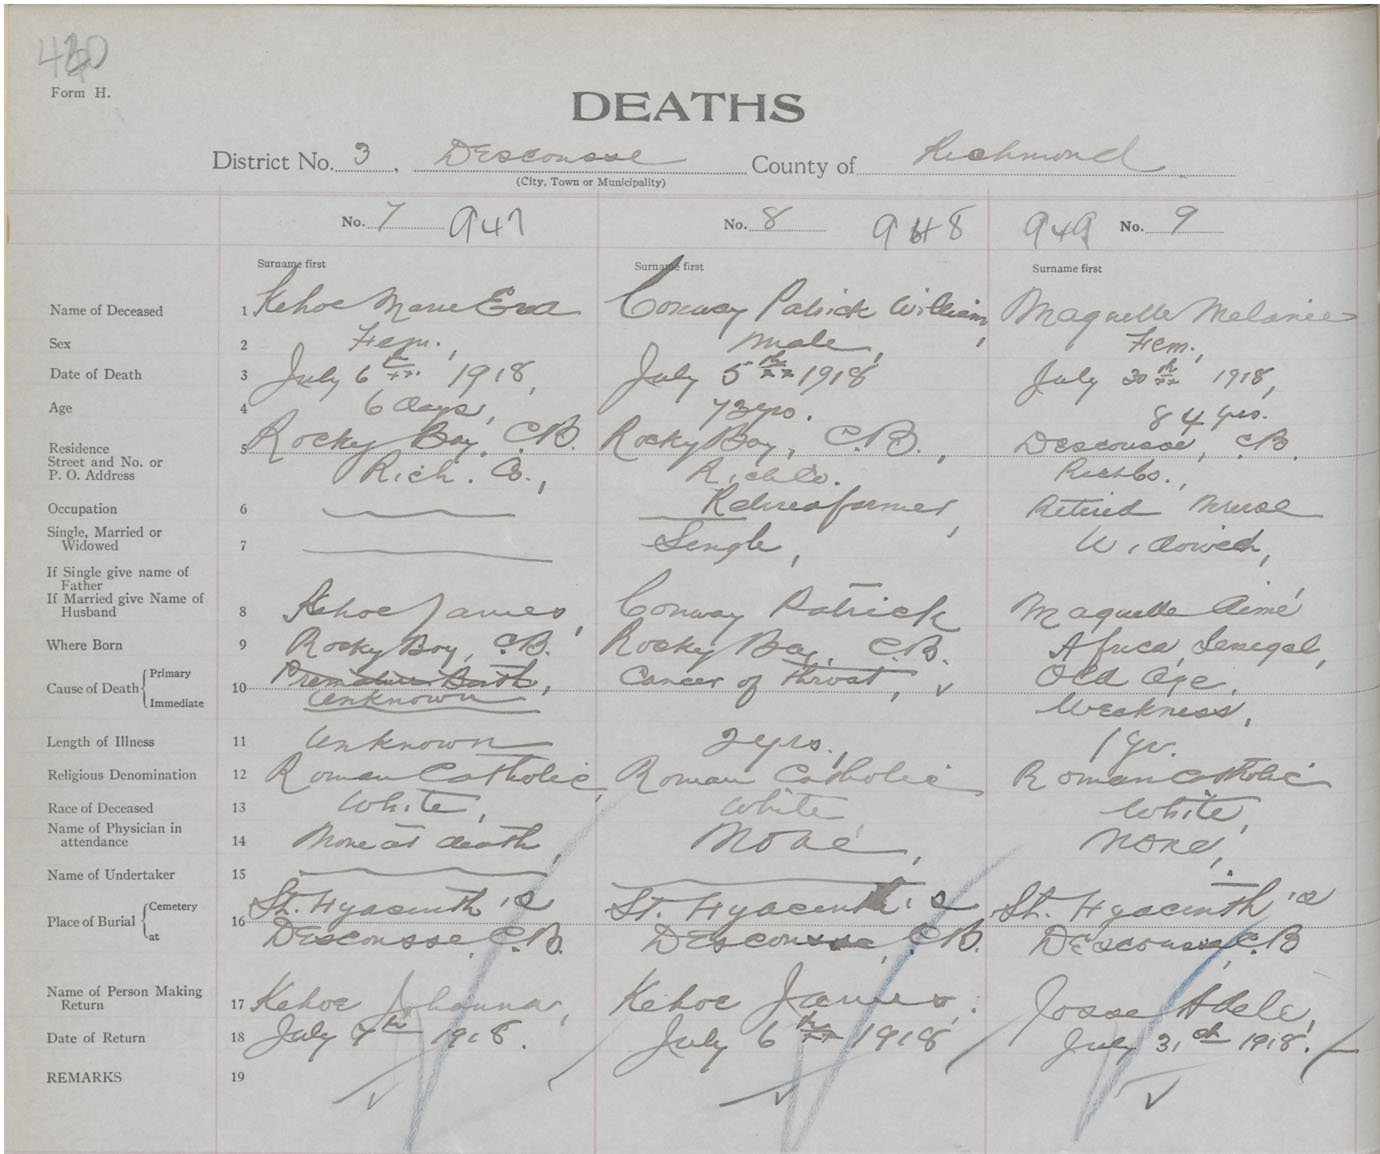 Form H.
DEATHS
District No. 3, Descousse County of Richmond
(City, Town or Municipality)
No. 7 947 No. 8 948 949 No. 9
Surname first Surname first Surname first
Name of Deceased 1 Kehoe Marie Eva Conway Patrick William, Maquette Melanie
Sex 2 Fem., Male, Fem.,
Date of Death 3 July 6th 1918, July 5th 1918 July 30th 1918,
Age 4 6 days, 73 yrs. 84 yrs.
Residence Street and No. or P. O. Address 5 Rocky Bay, C.B. Rocky Bay, C.B., Descousse, C.B.
Rich. Co., Rich Co. Rich Co.,
Occupation 6 Retired farmer, Retired Nurse
Single, Married or Widowed 7 Single, Widowed,
If Single give name of Father
If Married give Name of Husband 8 Kehoe James, Conway Patrick Maquette Aimé
Where Born 9 Rocky Bay, C.B. Rocky Bay, C.B. Africa, Senegal,
Cause of Death Primary 10 Premature Birth, Cancer of throat, Old Age,
Immediate Unknown Weakness,
Length of Illness 11 Unknown 2 yrs., 1 yr.
Religious Denomination 12 Roman Catholic, Roman Catholic Roman Catholic
Race of Deceased 13 White, White, White,
Name of Physician in attendance 14 None at death, None, None,
Name of Undertaker 15
Place of Burial Cemetery 16 St. Hyacinth's St. Hyacinth's St. Hyacinth's
at Descousse, C.B. Descousse, C.B. Descousse, C.B
Name of Person Making Return 17 Kehoe Johanna, Kehoe James, Josse Adele,
Date of Return 18 July 7th 1918. July 6th 1918 July 31st 1918.
REMARKS 19